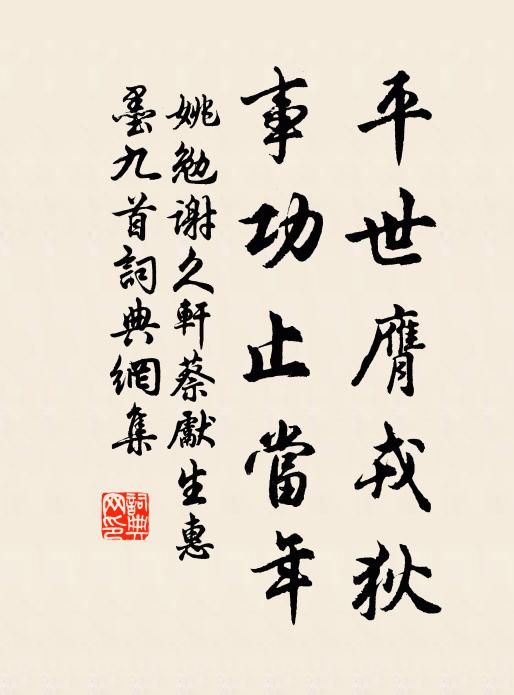 平世膺戎狄
事功止當年
姚勉謝久軒蔡獻生惠
墨九首詞典網集
詞典
网印